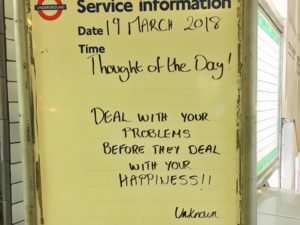 UNDERGROUND
Service information
Date 19 MARCH 2018
Time
Thought of the Day!
DEAL WITH YOUR
PROBLEMS
BEFORE THEY DEAL
WITH YOUR
HAPPINESS!!
Unknown